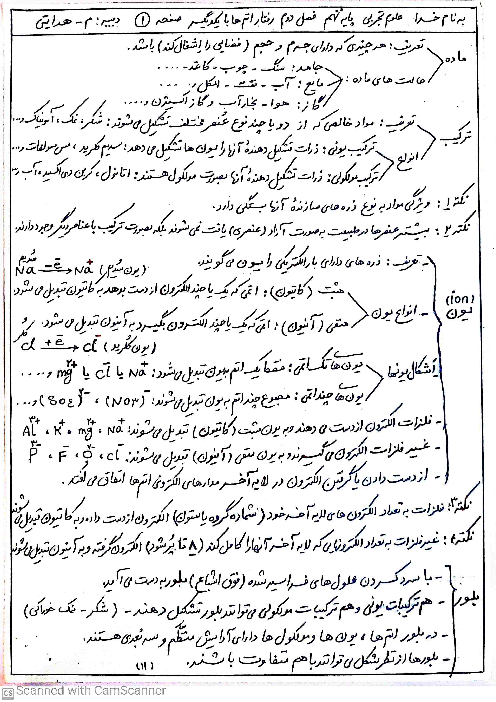 به نام خدا علوم تجربی پایه نهم فصل دوم رفتار اتم ها با یکدیگر صفحه ۱ دبیر: م - هدایتی
ماده
تعریف: هر چیزی که دارای جرم و حجم (فضایی را اشغال کند) باشد.
حالت های ماده:
جامد: سنگ - چوب - کاغذ....
مایع: آب - نفت - الکل و...
گاز: هوا - بخار آب و گاز اکسیژن و....
ترکیب
تعریف: مواد خالصی که از دو یا چند نوع عنصر مختلف تشکیل می شوند: شکر، نمک، آمونیاک و...
انواع
ترکیب یونی: ذرات تشکیل دهندهٔ آنها را یون ها تشکیل می دهد: سدیم کلرید، مس سولفات و...
ترکیب مولکولی: ذرات تشکیل دهندهٔ آنها بصورت مولکول هستند: اتانول، کربن دی اکسید، آب و...
نکته ۱: ویژگی مواد به نوع ذره های سازندهٔ آنها بستگی دارد.
نکته ۲: بیشتر عنصرها در طبیعت به صورت آزاد (عنصری) یافت نمی شوند بلکه بصورت ترکیب با عناصر دیگر وجود دارند.
یون (ion)
- تعریف: ذره های دارای بار الکتریکی را یون می گویند.
سدیم Na -e→ Na+ (یون سدیم)
- انواع یون
مثبت (کاتیون): اتمی که یک یا چند الکترون از دست بدهد به کاتیون تبدیل می شود
منفی (آنیون): اتمی که یک یا چند الکترون بگیرد به آنیون تبدیل می شود.
کلر Cl +e→ Cl- (یون کلرید)
- اشکال یونها
یون های تک اتمی: فقط یک اتم به یون تبدیل می شود: Na+ یا Cl- یا mg2+ و....
یون های چند اتمی: مجموع چند اتم به یون تبدیل می شوند: (NO3)- ، (SO4)2- و...
- فلزات الکترون از دست می دهند و به یون مثبت (کاتیون) تبدیل می شوند: Na+ ، mg2+ ، K+ ، Al3+
- غیر فلزات الکترون می گیرند و به یون منفی (آنیون) تبدیل می شوند: Cl- ، O2- ، F- ، P3-
- از دست دادن یا گرفتن الکترون در لایه آخر مدارهای الکترونی اتم ها اتفاق می افتد.
نکته ۳: فلزات به تعداد الکترون های لایه آخر خود (شماره گروه یا ستون) الکترون از دست داده و به کاتیون تبدیل می شوند
نکته ۴: غیر فلزات به تعداد الکترونهایی که لایه آخر آنها را کامل کند (۸ تا پر شود) الکترون گرفته و به آنیون تبدیل می شوند
بلور
- با سرد کردن محلول های فراسیر شده (فوق اشباع) بلور به دست می آید.
- هم ترکیبات یونی و هم ترکیبات مولکولی می توانند بلور تشکیل دهند - (شکر - نمک خوراکی)
- در بلور اتم ها، یون ها و مولکول ها دارای آرایش منظم و سه بعدی هستند.
- بلورها از نظر شکل می توانند با هم متفاوت باشند.
(۱۱)
CS Scanned with CamScanner